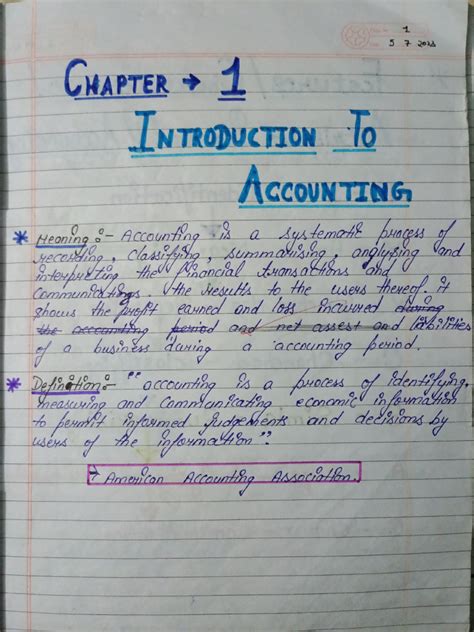 1
5 7 2023
CHAPTER → 1
INTRODUCTION TO
ACCOUNTING
* Meaning :- Accounting is a systematic process of
recording, classifying, summarising, analysing and
interpreting the financial transactions and
communicating. the results to the users thereof. it
shows the profit earned and loss incurred during
the accounting period and net assest and libilities
of a business during a accounting period.
* Definition:- " accounting is a process of identifying,
measuring and communicating economic information
to permit informed judgements and decisions by
users of the information".
→ American Accounting Association.